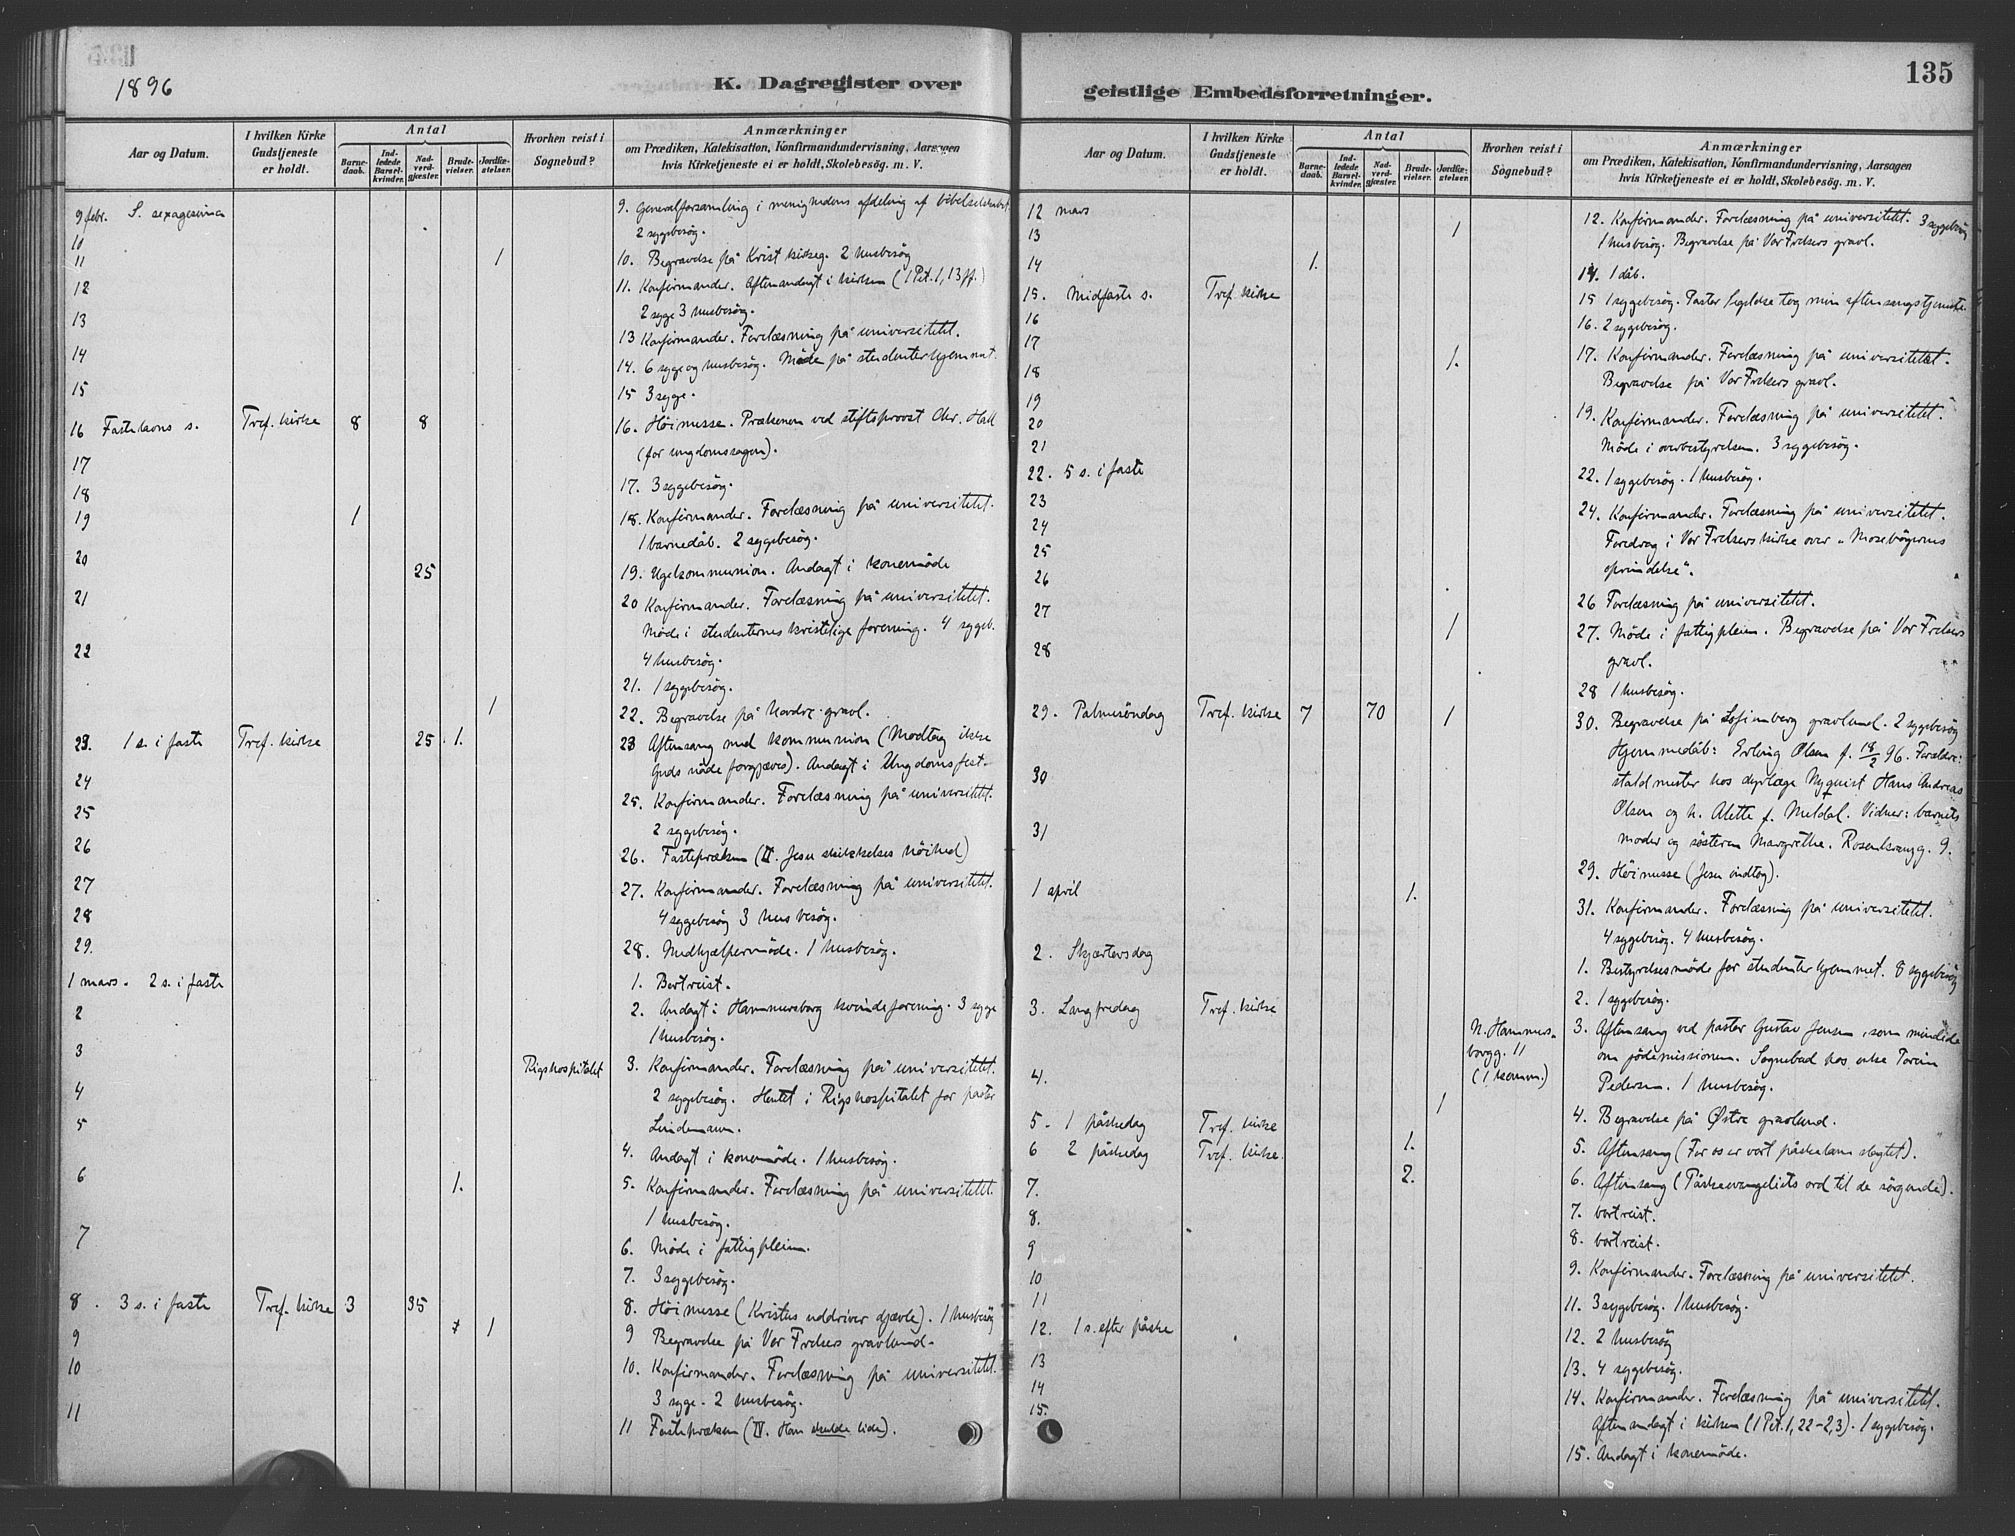 1896
K. Dagregister over
Aar og Datum.
I hvilken Kirke Gudstjeneste er holdt.
Antal
Barnedaab.
Indledede Barselkvinder.
Nadverdgjæster.
Brudevielser.
Jordfæstelser.
Hvorhen reist i Sognebud?
Anmærkninger
om Prædiken, Katekisation, Konfirmandundervisning, Aarsagen
hvis Kirketjeneste ei er holdt, Skolebesög. m. V.
9 febr. S. sexagesima
9. Generalforsamling i menighedens afdeling af bibelselskabet.
2 sygebesøg.
10
11 1
10. Begravelse på Krist kirkeg. 2 husbesøg
12
11. Konfirmander. Aftenandagt i kirken (1 Pet. 1, 13 ff.)
2 syge 3 husbesøg.
13
13 Konfirmander. Forelæsning på universitetet.
14
14. 6 syge og husbesøg. Møde på studenterhjemmet.
15
15 3 syge.
16 Fastelavns s. Tref. kirke 8 8
16. Höimesse. Prækenen ved stiftsprovst Chr. Hall
(for ungdomssagen).
17
17. 3 sygebesøg.
18
18. Konfirmander. Forelæsning på universitetet.
19 1
1 barnedåb. 2 sygebesøg.
20 25
19. Ugekommunion. Andagt i konemøde
21
20 Konfirmander. Forelæsning på universitetet.
Møde i studenternes kristelige forening. 4 sygeb.
22
4 husbesøg.
21. 1 sygebesøg.
1
22. Begravelse på Nordre gravl.
23. 1 s. i faste Tref. kirke 25 1.
23 Aftensang med kommunion (Modtag ikke
Guds nåde forgjæves). Andagt i Ungdomsfest.
24
25
25. Konfirmander. Forelæsning på universitetet.
2 sygebesøg.
26
26. Fastepræken (II. Jesu skikkelses höihed)
27
27. Konfirmander. Forelæsning på universitetet.
28
4 sygebesøg 3 husbesøg.
29.
28. Medhjælpermøde. 1 husbesøg.
1 mars. 2 s. i faste
1. Bortreist.
2
2. Andagt i Hammersborg kvindeforening. 3 syge
1 husbesøg.
3 Rigshospitalet
3. Konfirmander. Forelæsning på universitetet.
4
2 sygebesøg. Hentet i Rigshospitalet for pastor
Lindemann.
5
4. Andagt i konemøde. 1 husbesøg.
6 1.
5. Konfirmander. Forelæsning på universitetet.
1 husbesøg.
7
6. Møde i fattigpleien.
7. 3 sygebesøg.
8. 3 s. i faste Tref. kirke 3 35
8. Höimesse (Kristus uddriver djævle). 1 husbesøg
9 1
9 Begravelse på Vor Frelsers gravlund.
10
10. Konfirmander. Forelæsning på universitetet.
3 syge. 2 husbesøg.
11
11 Fastepræken (IV. Han skulde lide).
135
geistlige Embedsforretninger.
Aar og Datum.
I hvilken Kirke Gudstjeneste er holdt.
Antal
Barnedaab.
Indledede Barselkvinder.
Nadverdgjæster.
Brudevielser.
Jordfæstelser.
Hvorhen reist i Sognebud?
Anmærkninger
om Prædiken, Katekisation, Konfirmandundervisning, Aarsagen
hvis Kirketjeneste ei er holdt, Skolebesög. m. V.
12 mars
12. Konfirmander. Forelæsning på universitetet. 3 sygebesøg
13 1
1 husbesøg. Begravelse på Vor Frelsers gravl.
14 1.
14. 1 dåb.
15. Midfaste s. Tref. kirke
15 1 sygebesøg. Pastor tog min aftensangstjeneste.
16
16. 2 sygebesøg.
17 1.
17. Konfirmander. Forelæsning på universitetet.
18
Begravelse på Vor Frelsers gravl.
19
19. Konfirmander. Forelæsning på universitetet.
20
21
Møde i overbestyrelsen. 3 sygebesøg.
22. 5 s. i faste
22. 1 sygebesøg. 1 husbesøg.
23
24
24. Konfirmander. Forelæsning på universitetet.
25
Foredrag i Vor Frelsers kirke over "Mosebøgernes
26
oprindelse".
26 Forelæsning på universitetet.
27 1
27. Møde i fattigpleien. Begravelse på Vor Frelsers
28
gravl.
28 1 husbesøg.
29. Palmesöndag Tref. kirke 7 70 1
30. Begravelse på Sofienberg gravlund. 2 sygebesøg
Hjemmedåb: Erling Olsen f. 18/2 96. Forældre:
30
staldmester hos dyrlæge Nyquist Hans Andreas
Olsen og h. Alette f. Meldal. Vidner: barnets
31
moder og søsteren Margrethe. Rosenkrantzg. 9.
29. Höimesse (Jesu indtog).
1 april 1.
31. Konfirmander. Forelæsning på universitetet.
4 sygebesøg. 4 husbesøg.
2. Skjærtorsdag
1. Bestyrelsesmøde for studenterhjemmet. 8 sygebesøg
2. 1 sygebesøg.
3. Langfredag Tref. kirke
N. Hammers-
borgg. 11
(1 komm.)
3. Aftensang ved pastor Gustav Jensen, som mindede
om jødemissionen. Sognebud hos enke
Pedersen. 1 husbesøg.
4. 1
4. Begravelse på Østre gravlund.
5. 1 påskedag Tref. kirke
5. Aftensang (For os er vort påskelam slagtet).
6 2 påskedag Tref. kirke. 1.
6. Aftensang (Påskeevangeliets ord til de sørgende).
7. 2.
7. bortreist.
8.
8. bortreist.
9
9. Konfirmander. Forelæsning på universitetet.
10
11
11. 3 sygebesøg. 1 husbesøg.
12. 1 s. efter påske
12. 2 husbesøg
13
13. 4 sygebesøg.
14
14. Konfirmander. Forelæsning på universitetet.
15.
Aftenandagt i kirken (1 Pet. 1, 22-2,3). 1 sygebesøg.
15. Andagt i konemøde.